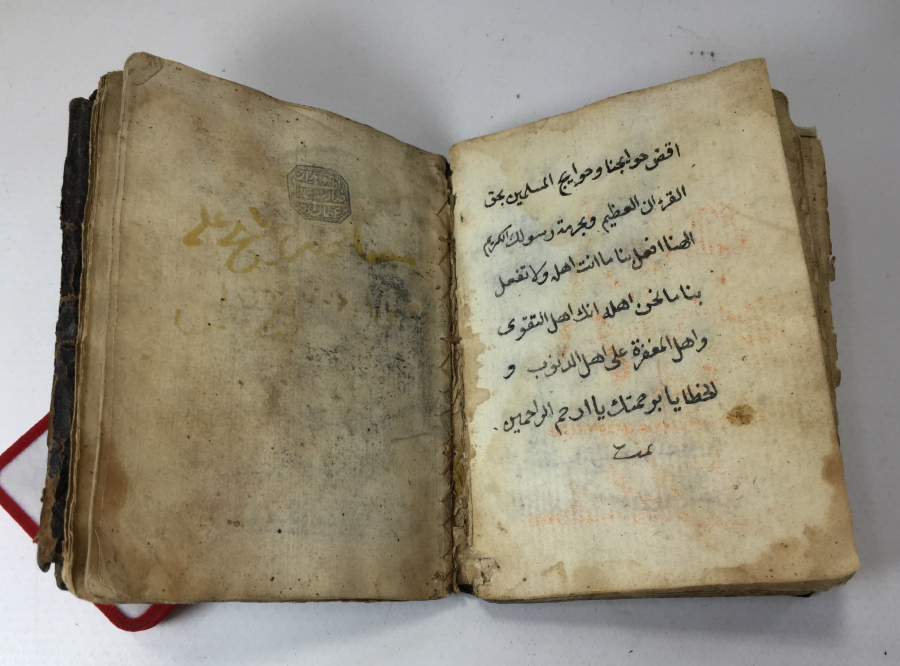 اقض حوايجنا وحوايج المسلمين بحق
القرءان العظيم وبحرمة رسولك الكريم
الهنا افعل بنا ما انت اهله ولا تفعل
بنا ما نحن اهله انك اهل التقوى
واهل المغفرة على اهل الذنوب و
الخطايا برحمتك يا ارحم الراحمين
تمت